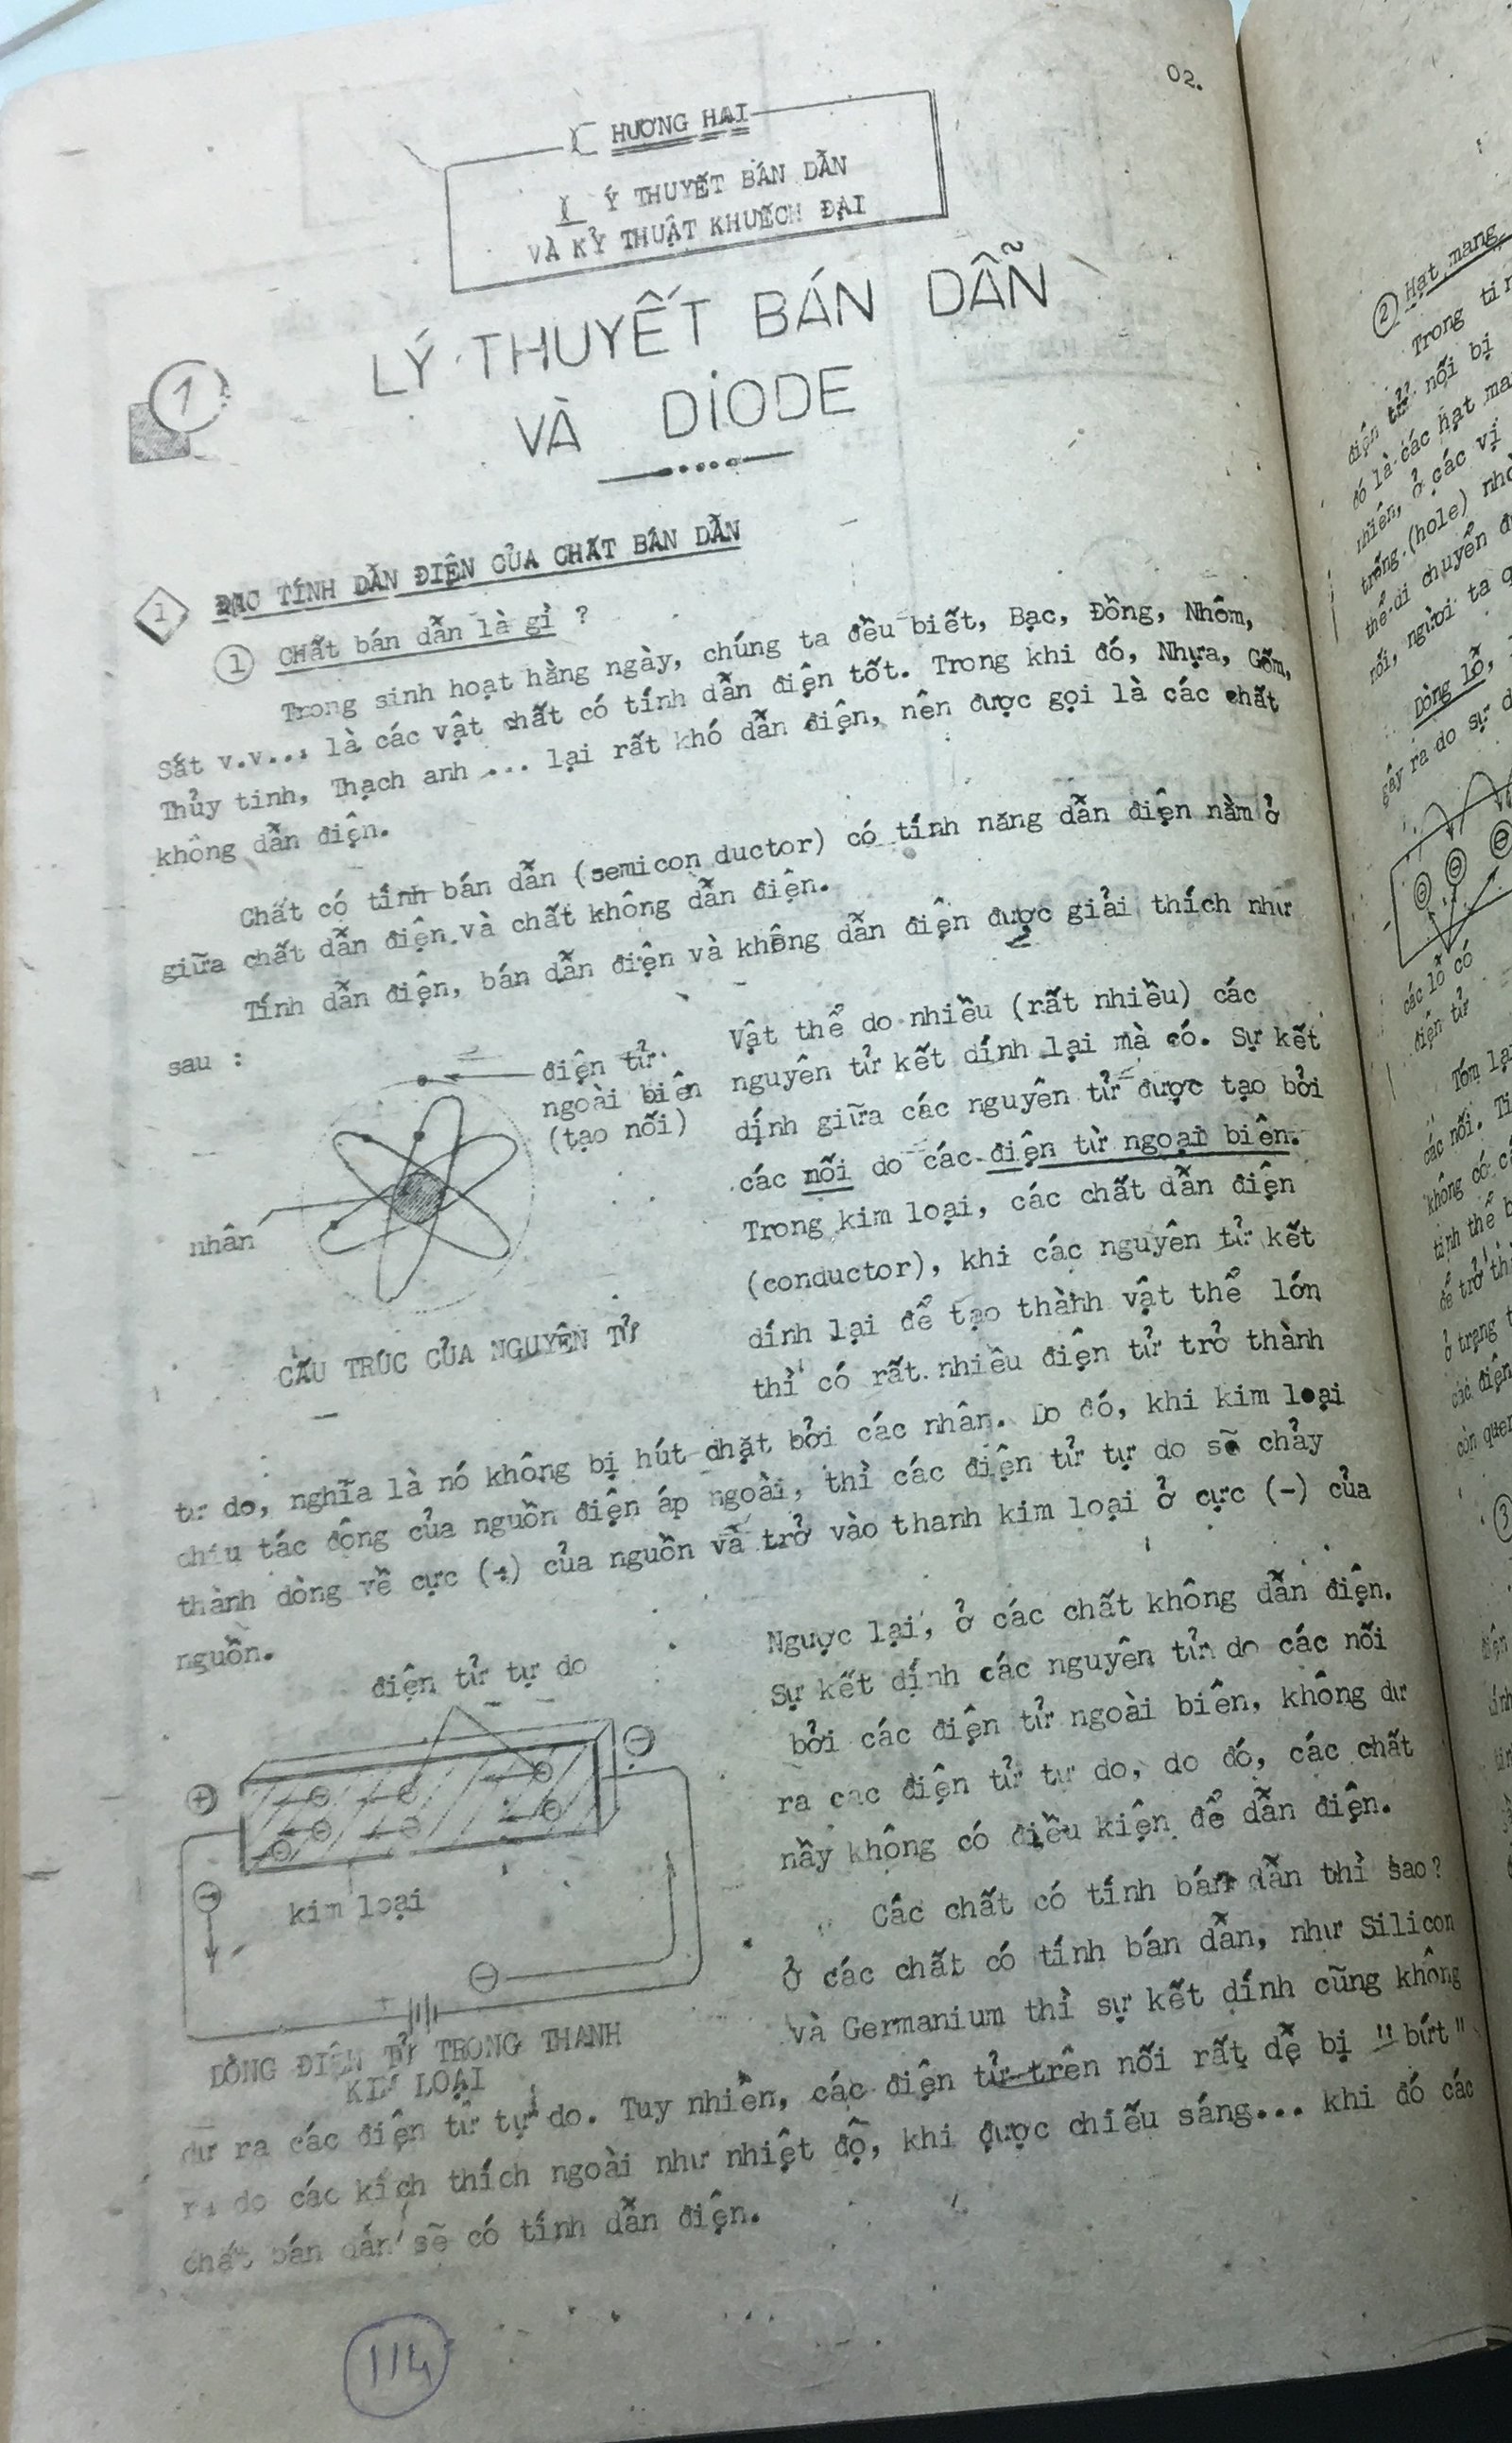 02.
CHƯƠNG HAI
LÝ THUYẾT BÁN DẪN
VÀ KỸ THUẬT KHUẾCH ĐẠI
1
LÝ THUYẾT BÁN DẪN
VÀ DIODE
1 ĐẶC TÍNH DẪN ĐIỆN CỦA CHẤT BÁN DẪN
1 CHất bán dẫn là gì ?
Trong sinh hoạt hằng ngày, chúng ta đều biết, Bạc, Đồng, Nhôm,
Sắt v.v... là các vật chất có tính dẫn điện tốt. Trong khi đó, Nhựa, Gốm,
Thủy tinh, Thạch anh ... lại rất khó dẫn điện, nên được gọi là các chất
không dẫn điện.
Chất có tính bán dẫn (semicon ductor) có tính năng dẫn điện nằm ở
giữa chất dẫn điện và chất không dẫn điện.
Tính dẫn điện, bán dẫn điện và không dẫn điện được giải thích như
sau :
điện tử
ngoài biên
(tạo nối)
nhân
CẤU TRÚC CỦA NGUYÊN TỬ
Vật thể do nhiều (rất nhiều) các
nguyên tử kết dính lại mà có. Sự kết
dính giữa các nguyên tử được tạo bởi
các nối do các điện tử ngoại biên.
Trong kim loại, các chất dẫn điện
(conductor), khi các nguyên tử kết
dính lại để tạo thành vật thể lớn
thì có rất nhiều điện tử trở thành
tự do, nghĩa là nó không bị hút chặt bởi các nhân. Do đó, khi kim loại
chịu tác động của nguồn điện áp ngoài, thì các điện tử tự do sẽ chảy
thành dòng về cực (+) của nguồn và trở vào thanh kim loại ở cực (-) của
nguồn.
điện tử tự do
kim loại
DÒNG ĐIỆN TỬ TRONG THANH
KIM LOẠI
Ngược lại, ở các chất không dẫn điện.
Sự kết dính các nguyên tử do các nối
bởi các điện tử ngoài biên, không dư
ra các điện tử tự do, do đó, các chất
nầy không có điều kiện để dẫn điện.
Các chất có tính bán dẫn thì sao?
Ở các chất có tính bán dẫn, như Silicon
và Germanium thì sự kết dính cũng không
dư ra các điện tử tự do. Tuy nhiên, các điện tử trên nối rất dễ bị "bứt"
ra do các kích thích ngoài như nhiệt độ, khi được chiếu sáng... khi đó các
chất bán dẫn sẽ có tính dẫn điện.
114
2 Hạt mang
Trong
điện tử nối bị
đó là các hạt
nhiên, ở các vị
trống (hole)
thể di chuyển
nối, người ta
Dòng lỗ,
gây ra do sự
các lỗ có
điện tử
Tóm lại
các nối.
không có
tinh thể
để trở
ở trạng
các điện
còn quen
3
điện